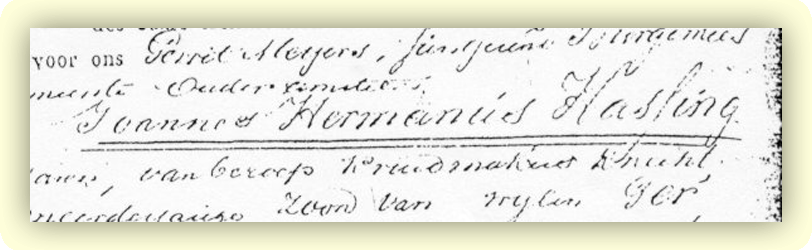 voor ons Gerrit Meyers, fungerend Burgemees
meente Ouder
Joannes Hermanus Hasling
van beroep Kruidmakers Knecht
Zoon van wylen Ger